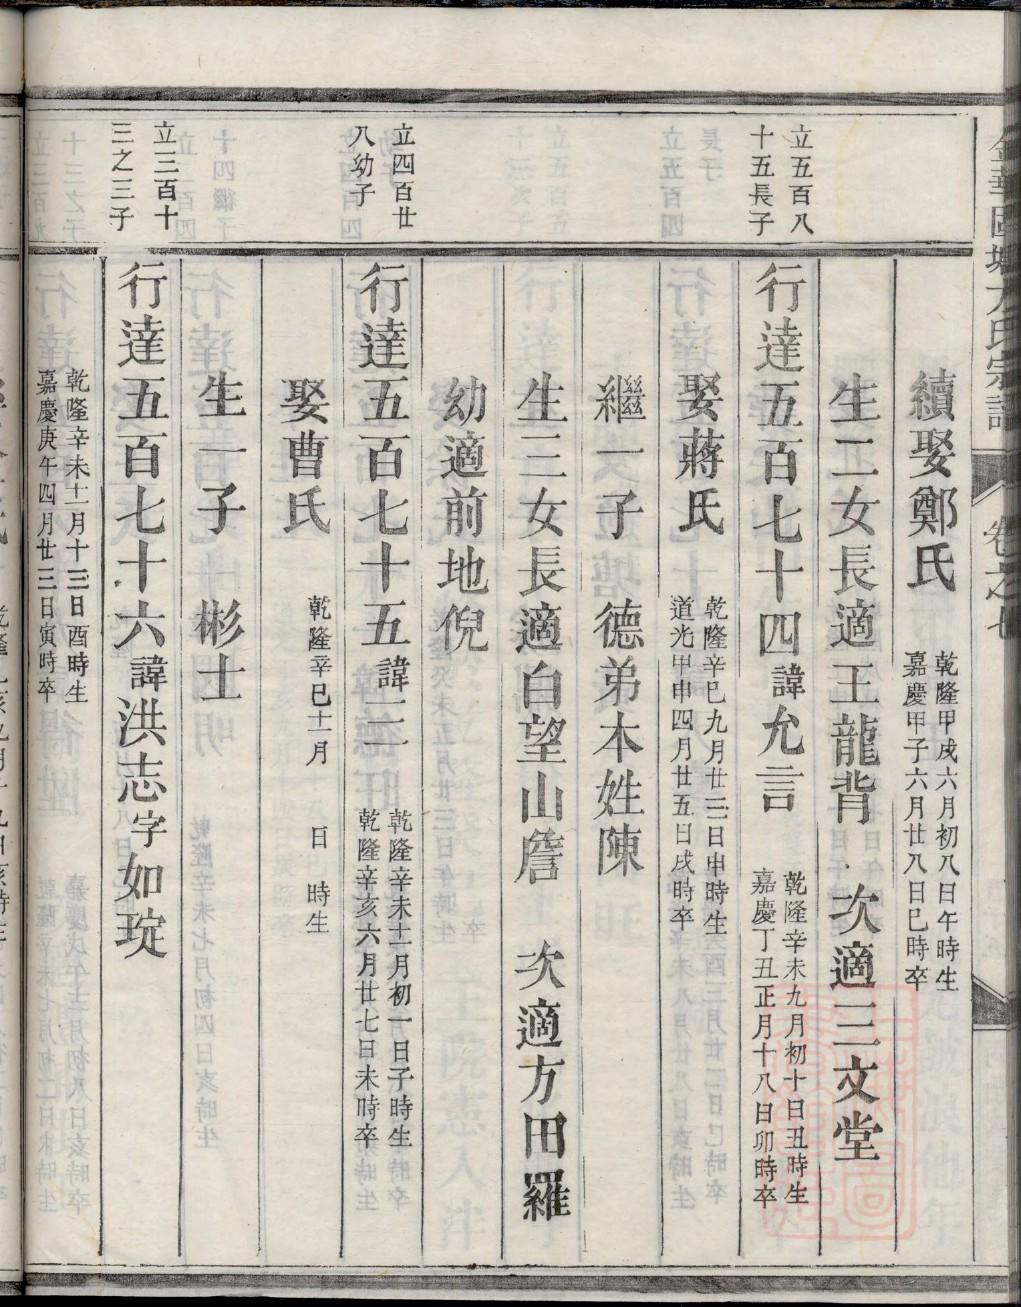 金華國塘方氏宗譜 卷之七
續娶鄭氏 乾隆甲戌六月初八日午時生
嘉慶甲子六月廿八日巳時卒
生二女長適王龍背 次適三文堂
立五百八
十五長子
行達五百七十四諱允言 乾隆辛未九月初十日丑時生
嘉慶丁丑正月十八日卯時卒
娶蔣氏 乾隆辛巳九月廿三日申時生
道光甲申四月廿五日戌時卒
繼一子 德弟本姓陳
生三女長適白望山詹 次適方田羅
幼適前地倪
立四百廿
八幼子
行達五百七十五諱三 乾隆辛未十二月初一日子時生
乾隆辛亥六月廿七日未時卒
娶曹氏 乾隆辛巳十一月 日 時生
生一子 彬士
立三百十
三之三子
行達五百七十六諱洪志字如琔
乾隆辛未十一月十三日酉時生
嘉慶庚午四月廿三日寅時卒